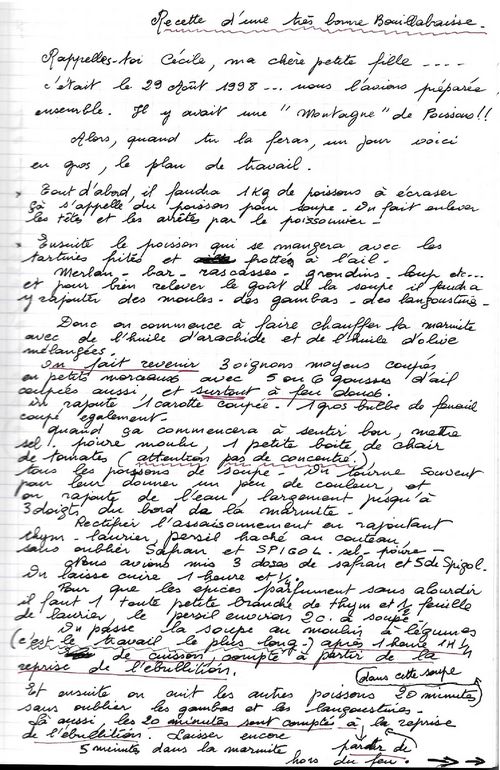 Recette d'une très bonne Bouillabaisse.
Rappelles-toi Cécile, ma chère petite fille ----
c'était le 29 Août 1998... nous l'avions préparée
ensemble. Il y avait une "Montagne" de Poissons!!
Alors, quand tu la feras, un jour voici
en gros, le plan de travail.
Tout d'abord, il faudra 1Kg de poissons à écraser
çà s'appelle du poisson pour soupe - On fait enlever
les têtes et les arêtes par le poissonnier -
Ensuite le poisson qui se mangera avec les
tartines frites et frottées à l'ail -
Merlan - bar - rascasses - grondins - loup etc...
et pour bien relever le goût de la soupe il faudra
y rajouter des moules - des gambas - des langoustines -
Donc on commence à faire chauffer la marmite
avec de l'huile d'arachide et de l'huile d'olive
mélangées.
On fait revenir 3 oignons moyens coupés
en petits morceaux avec 5 ou 6 gousses d'ail
coupées aussi et surtout à feu doux.
on rajoute 1 carotte coupée. 1 gros bulbe de fenouil
coupé également.
Quand ça commencera à sentir bon, mettre
sel. poivre moulu, 1 petite boite de chair
de tomates (attention pas de concentré.)
tous les poissons de soupe - On tourne souvent
pour leur donner un peu de couleur, et
on rajoute de l'eau largement jusqu'à
3 doigts du bord de la marmite -
Rectifier l'assaisonnement en rajoutant
thym - laurier, persil haché au couteau,
sans oublier Safran et SPIGOL - sel - poivre -
Nous avions mis 3 doses de safran et 5 de Spigol.
On laisse cuire 1 heure et 1/2
Pour que les épices parfument sans alourdir
il faut 1 toute petite branche de thym et 1/2 feuille
de laurier, le persil environ 2 c. à soupe
On passe la soupe au moulin à légumes
(c'est le travail le plus long -) après 1 heure 1/2
de cuisson, compté à partir de la
reprise de l'ébullition.
(dans cette soupe)
Et ensuite on cuit les autres poissons 20 minutes
sans oublier les gambas et les langoustines -
Là aussi, les 20 minutes sont comptés à la reprise
partir de
de l'ébullition. Laisser encore
5 minutes dans la marmite
hors du feu.